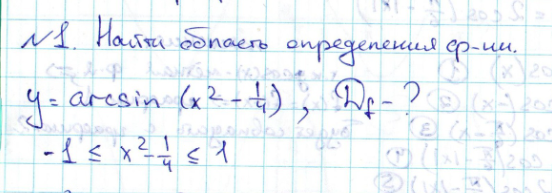 №1. Найти область определения ф-ии.
y = arcsin (x² - 1/4), D_f - ?
-1 ≤ x² - 1/4 ≤ 1